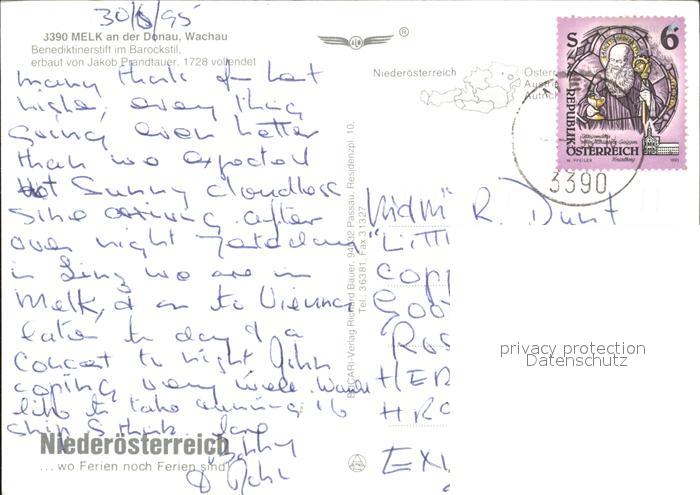 30/8/95
3390 MELK an der Donau, Wachau
Benediktinerstift im Barockstil,
erbaut von Jakob Prandtauer, 1728 vollendet
many thanks for last
night, every thing
going even better
than we expected
hot sunny cloudless
since arriving, after
over night
in Linz we are in
Melk, & on to Vienna
later to day & a
concert to night John
coping very well.
like to take running
ship I think. love
Niederösterreich
... wo Ferien noch Ferien sind
BOCARI-Verlag Richard Bauer, 94032 Passau, Residenzpl. 10,
Tel. 36381, Fax 31327
®
Niederösterreich
S
6
REPUBLIK
ÖSTERREICH
W. PFEILER
1993
3390
R. Dunt
"LITT
COPP
GOO
ROS
HER
HR
EX
privacy protection
Datenschutz